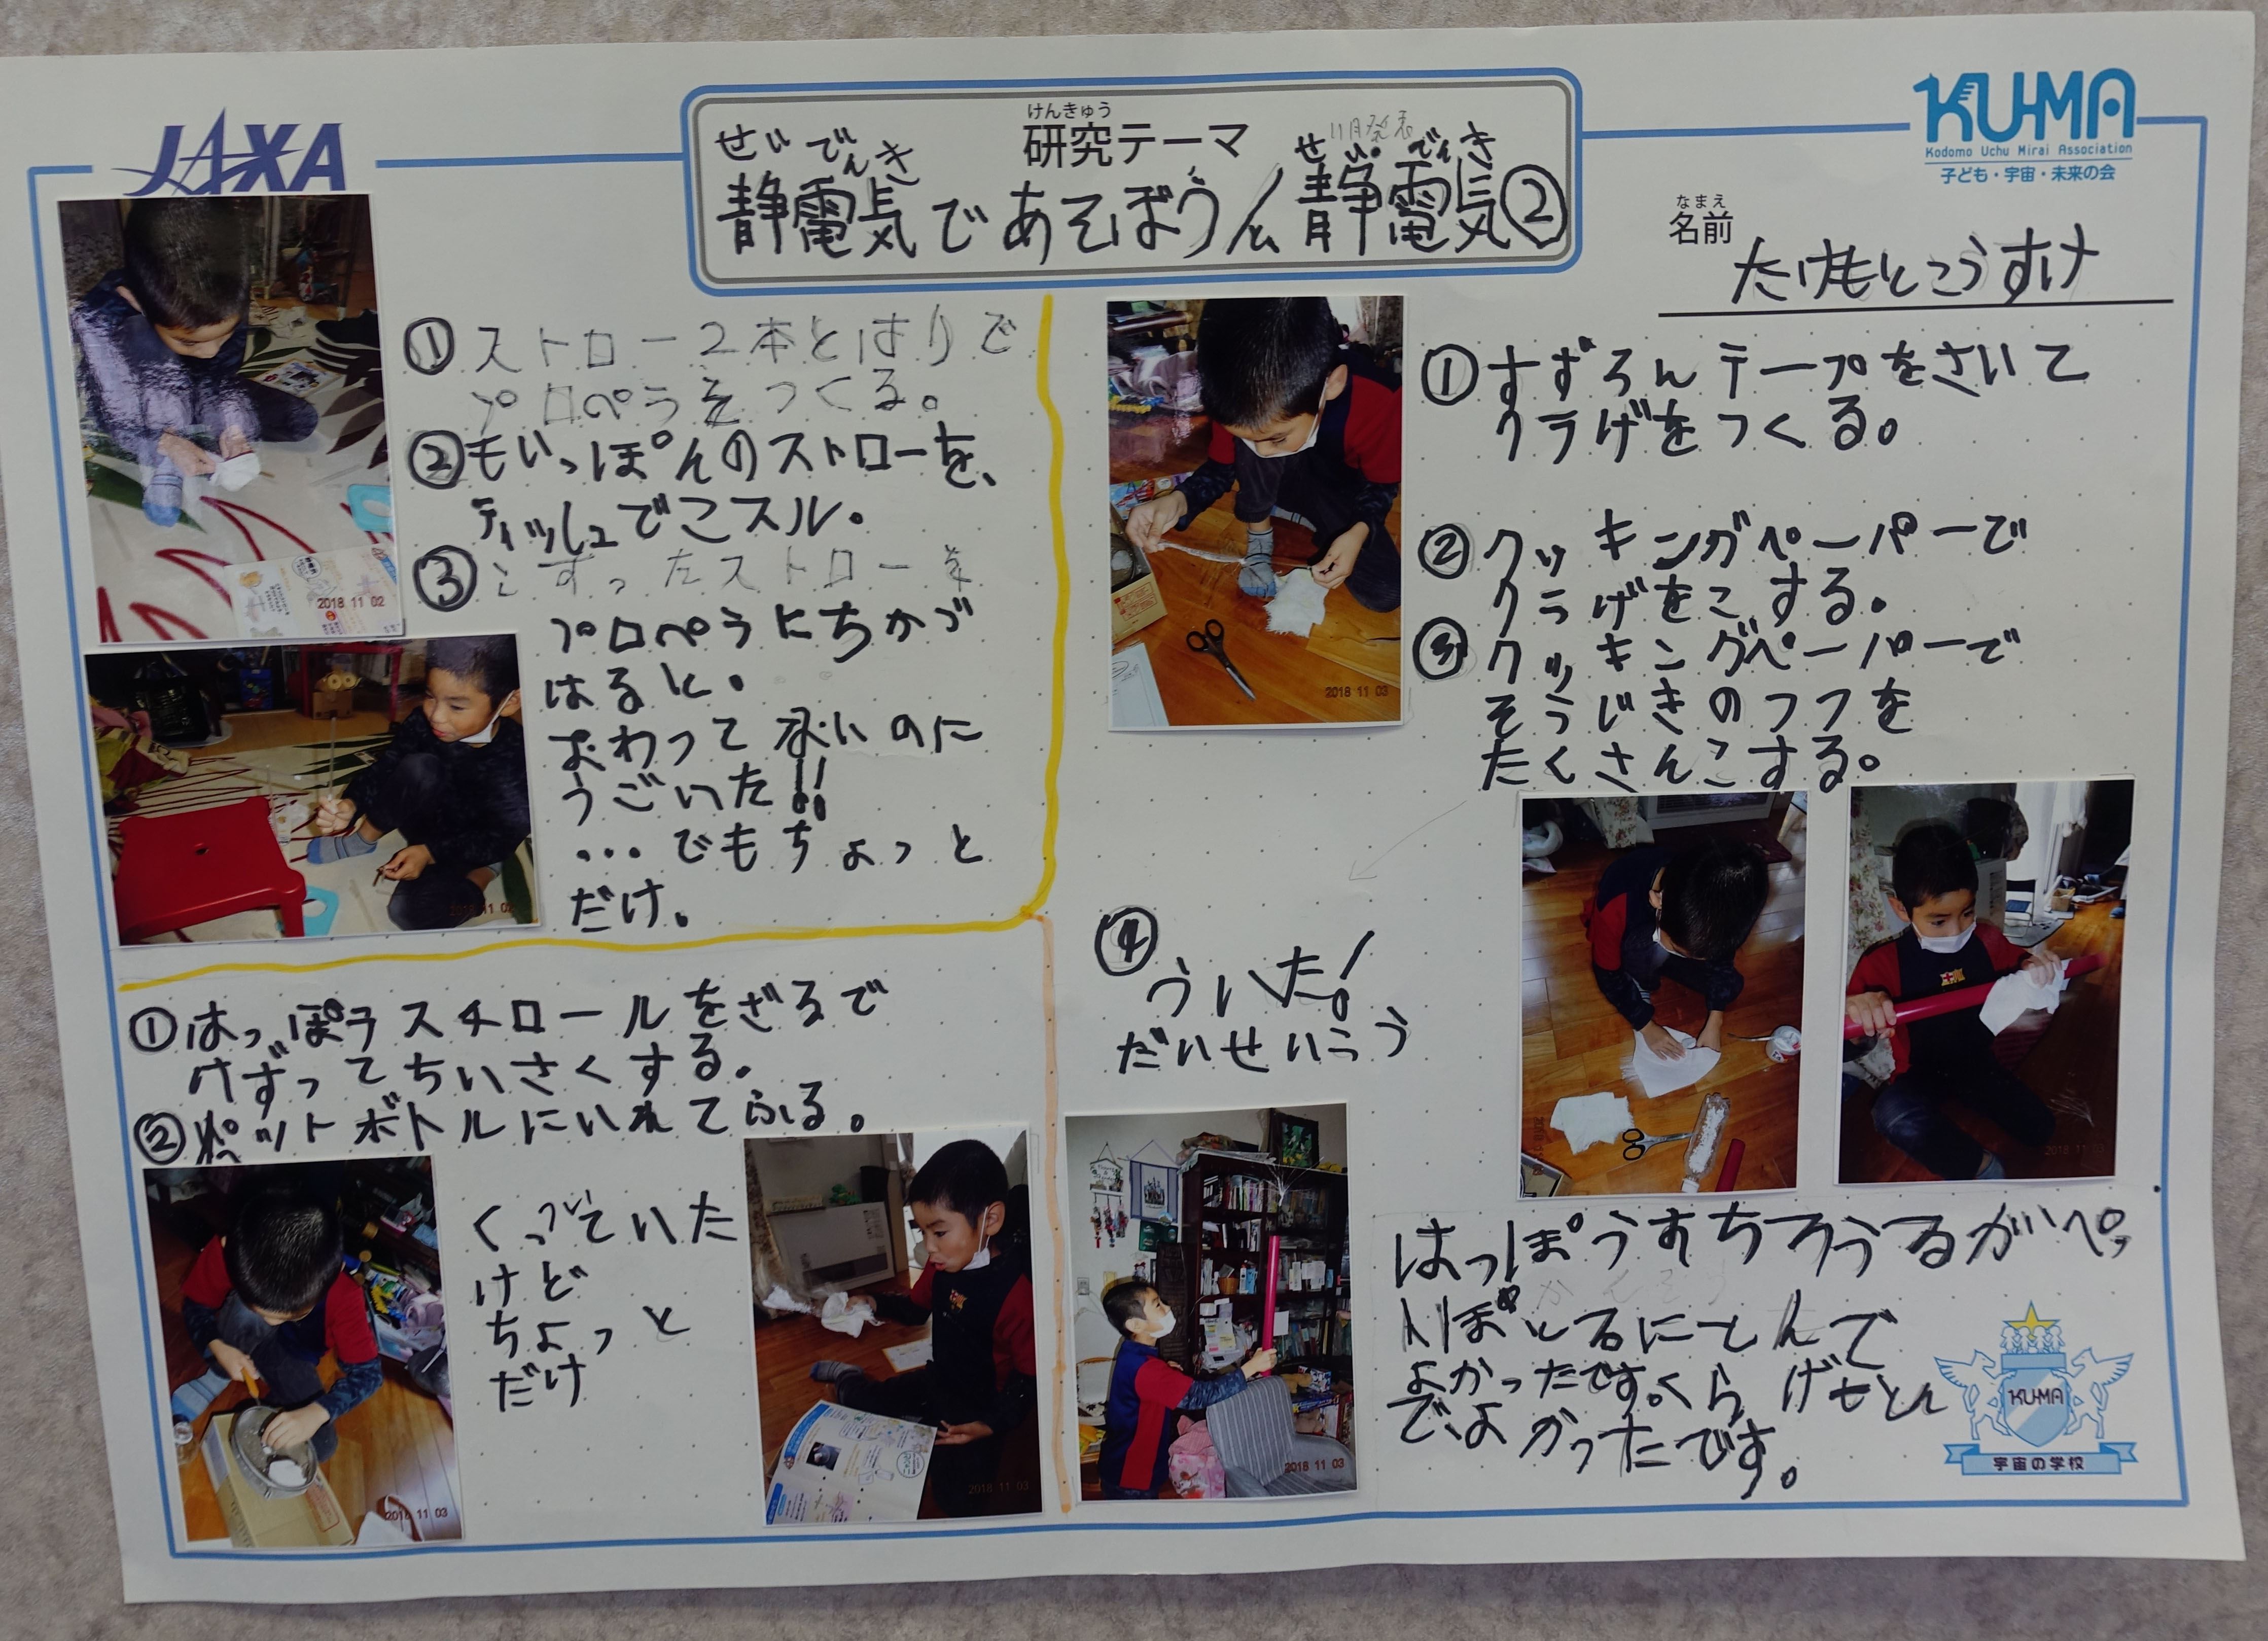 JAXA
けんきゅう
研究テーマ
11月発表
せいでんき
せいでんき
静電気であそぼう/静電気②
KU-MA
Kodomo Uchu Mirai Association
子ども・宇宙・未来の会
なまえ
名前
たけもとこうすけ
①ストロー2本とはりで
プロペラをつくる。
②もいっぽんのストローを、
ティッシュでこスル。
③こすったストローを
プロペラにちかづ
けると。
おわってないのに
うごいた!!
…でもちょっと
だけ。
2018 11 02
2018 11 02
①はっぽうスチロールをざるで
けずってちいさくする。
②ペットボトルにいれてふる。
くっついていた
けど
ちょっと
だけ
2018 11 03
2018 11 03
①すずろんテープをさいて
クラげをつくる。
②クッキングペーパーで
クラげをこする。
③クッキングペーパーで
そうじきのつつを
たくさんこする。
2018 11 03
④
ういた!
だいせいこう
2018 11 03
2018 11 03
はっぽうすちろうるがペっ
とぼとるにとんで
よかったです。くらげもとん
でよかったです。
KU-MA
宇宙の学校